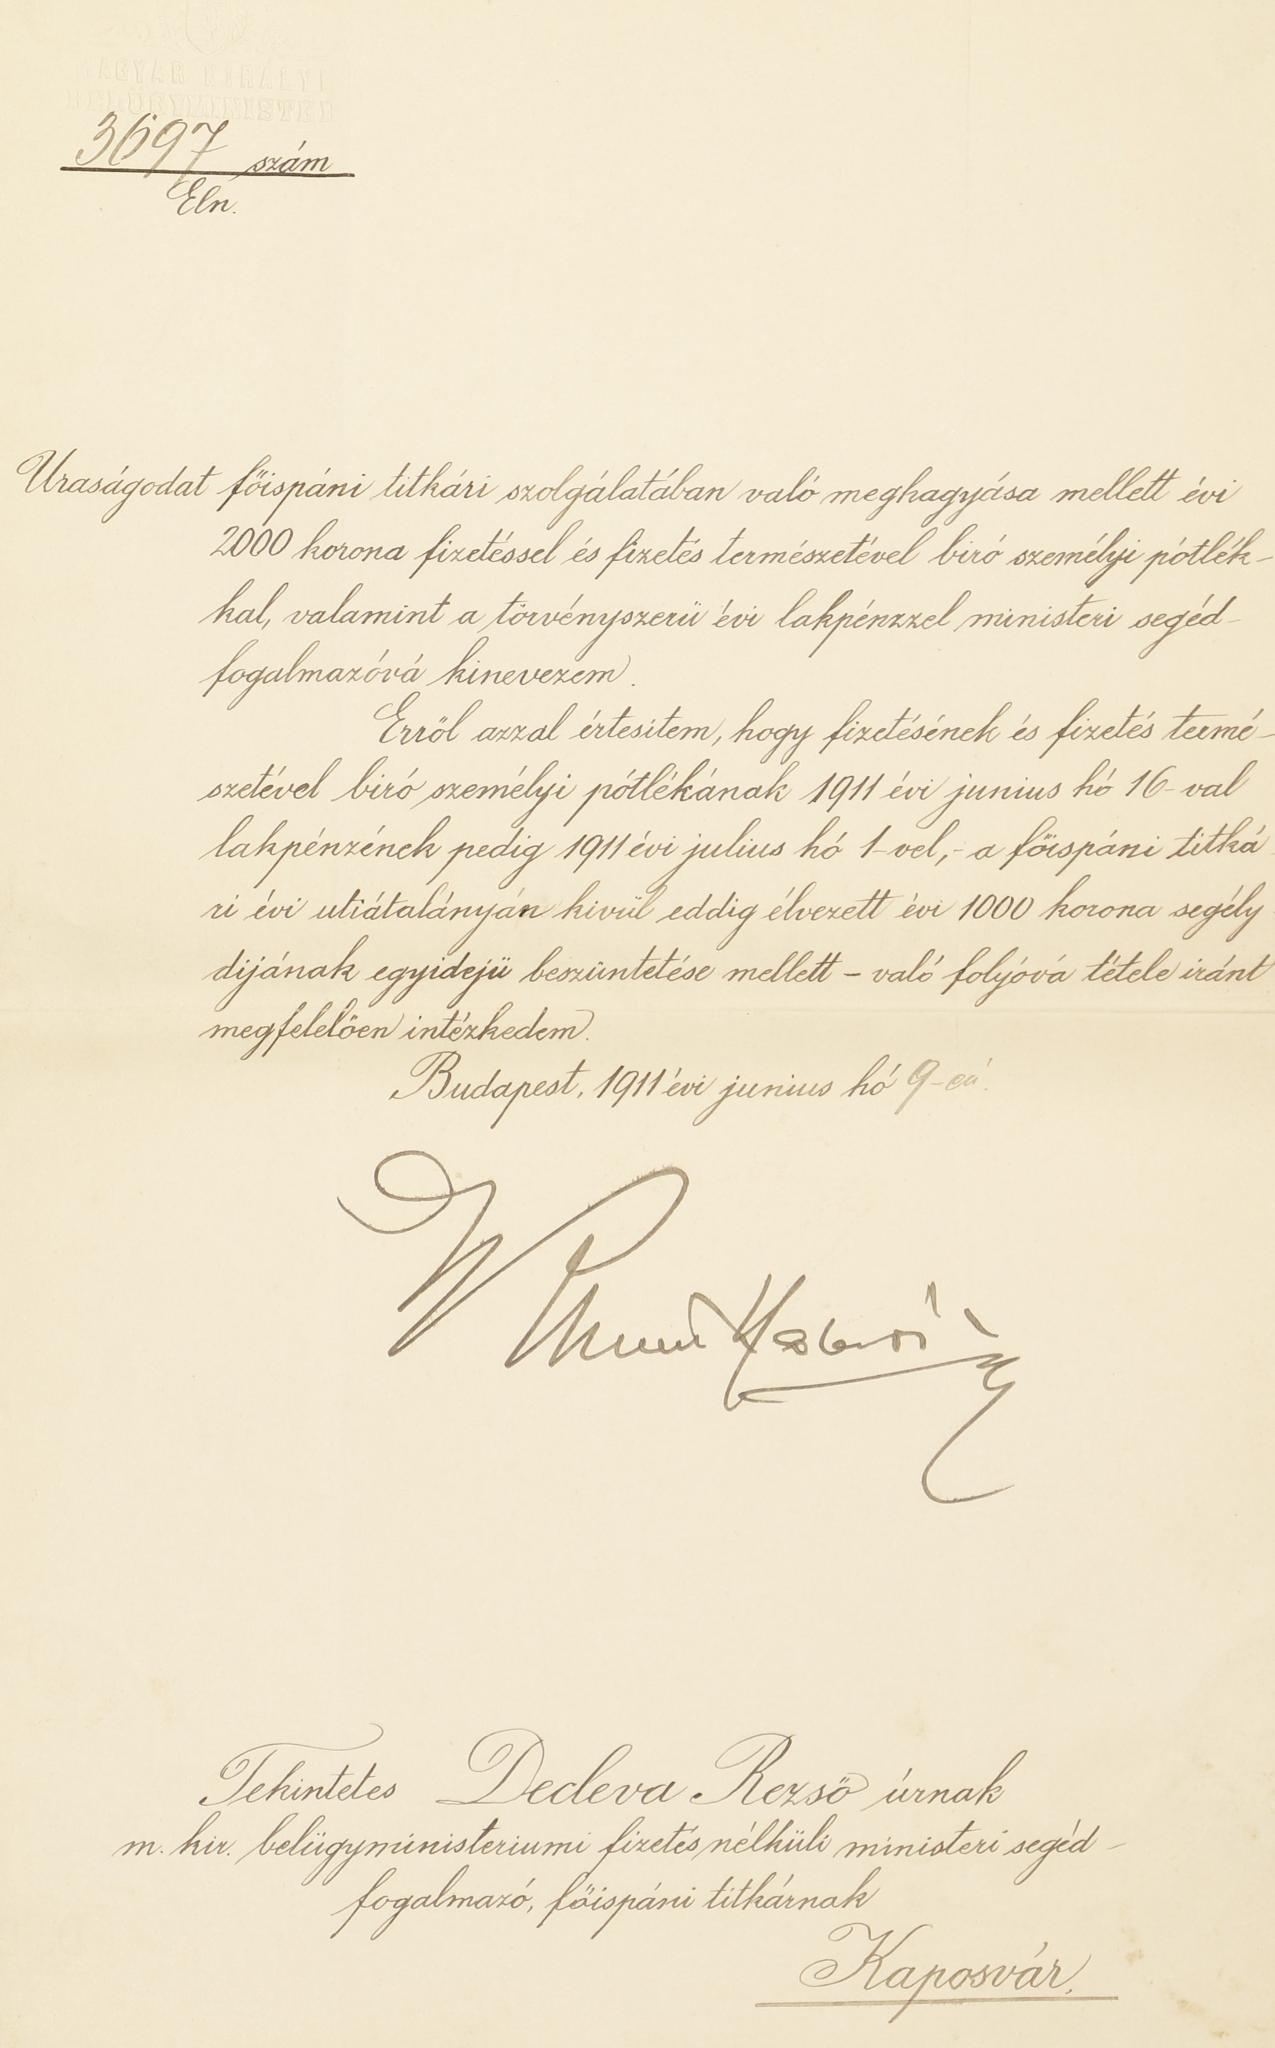 MAGYAR KIRÁLYI
BELÜGYMINISTER
3697 szám
Eln.
Uraságodat főispáni titkári szolgálatában való meghagyása mellett évi
2000 korona fizetéssel és fizetés természetével biró személyi pótlék-
kal, valamint a törvényszerü évi lakpénzzel ministeri segéd-
fogalmazóvá kinevezem.
Erről azzal értesitem, hogy fizetésének és fizetés termé-
szetével biró személyi pótlékának 1911 évi junius hó 16-val
lakpénzének pedig 1911 évi julius hó 1-vel, - a főispáni titká-
ri évi utiátalányán kivül eddig élvezett évi 1000 korona segély
dijának egyidejü beszüntetése mellett - való folyóvá tétele iránt
megfelelően intézkedem.
Budapest, 1911 évi junius hó 9-én.
Tekintetes Dedeva Rezső úrnak
m. kir. belügyministeriumi fizetésnélküli ministeri segéd-
fogalmazó, főispáni titkárnak
Kaposvár.